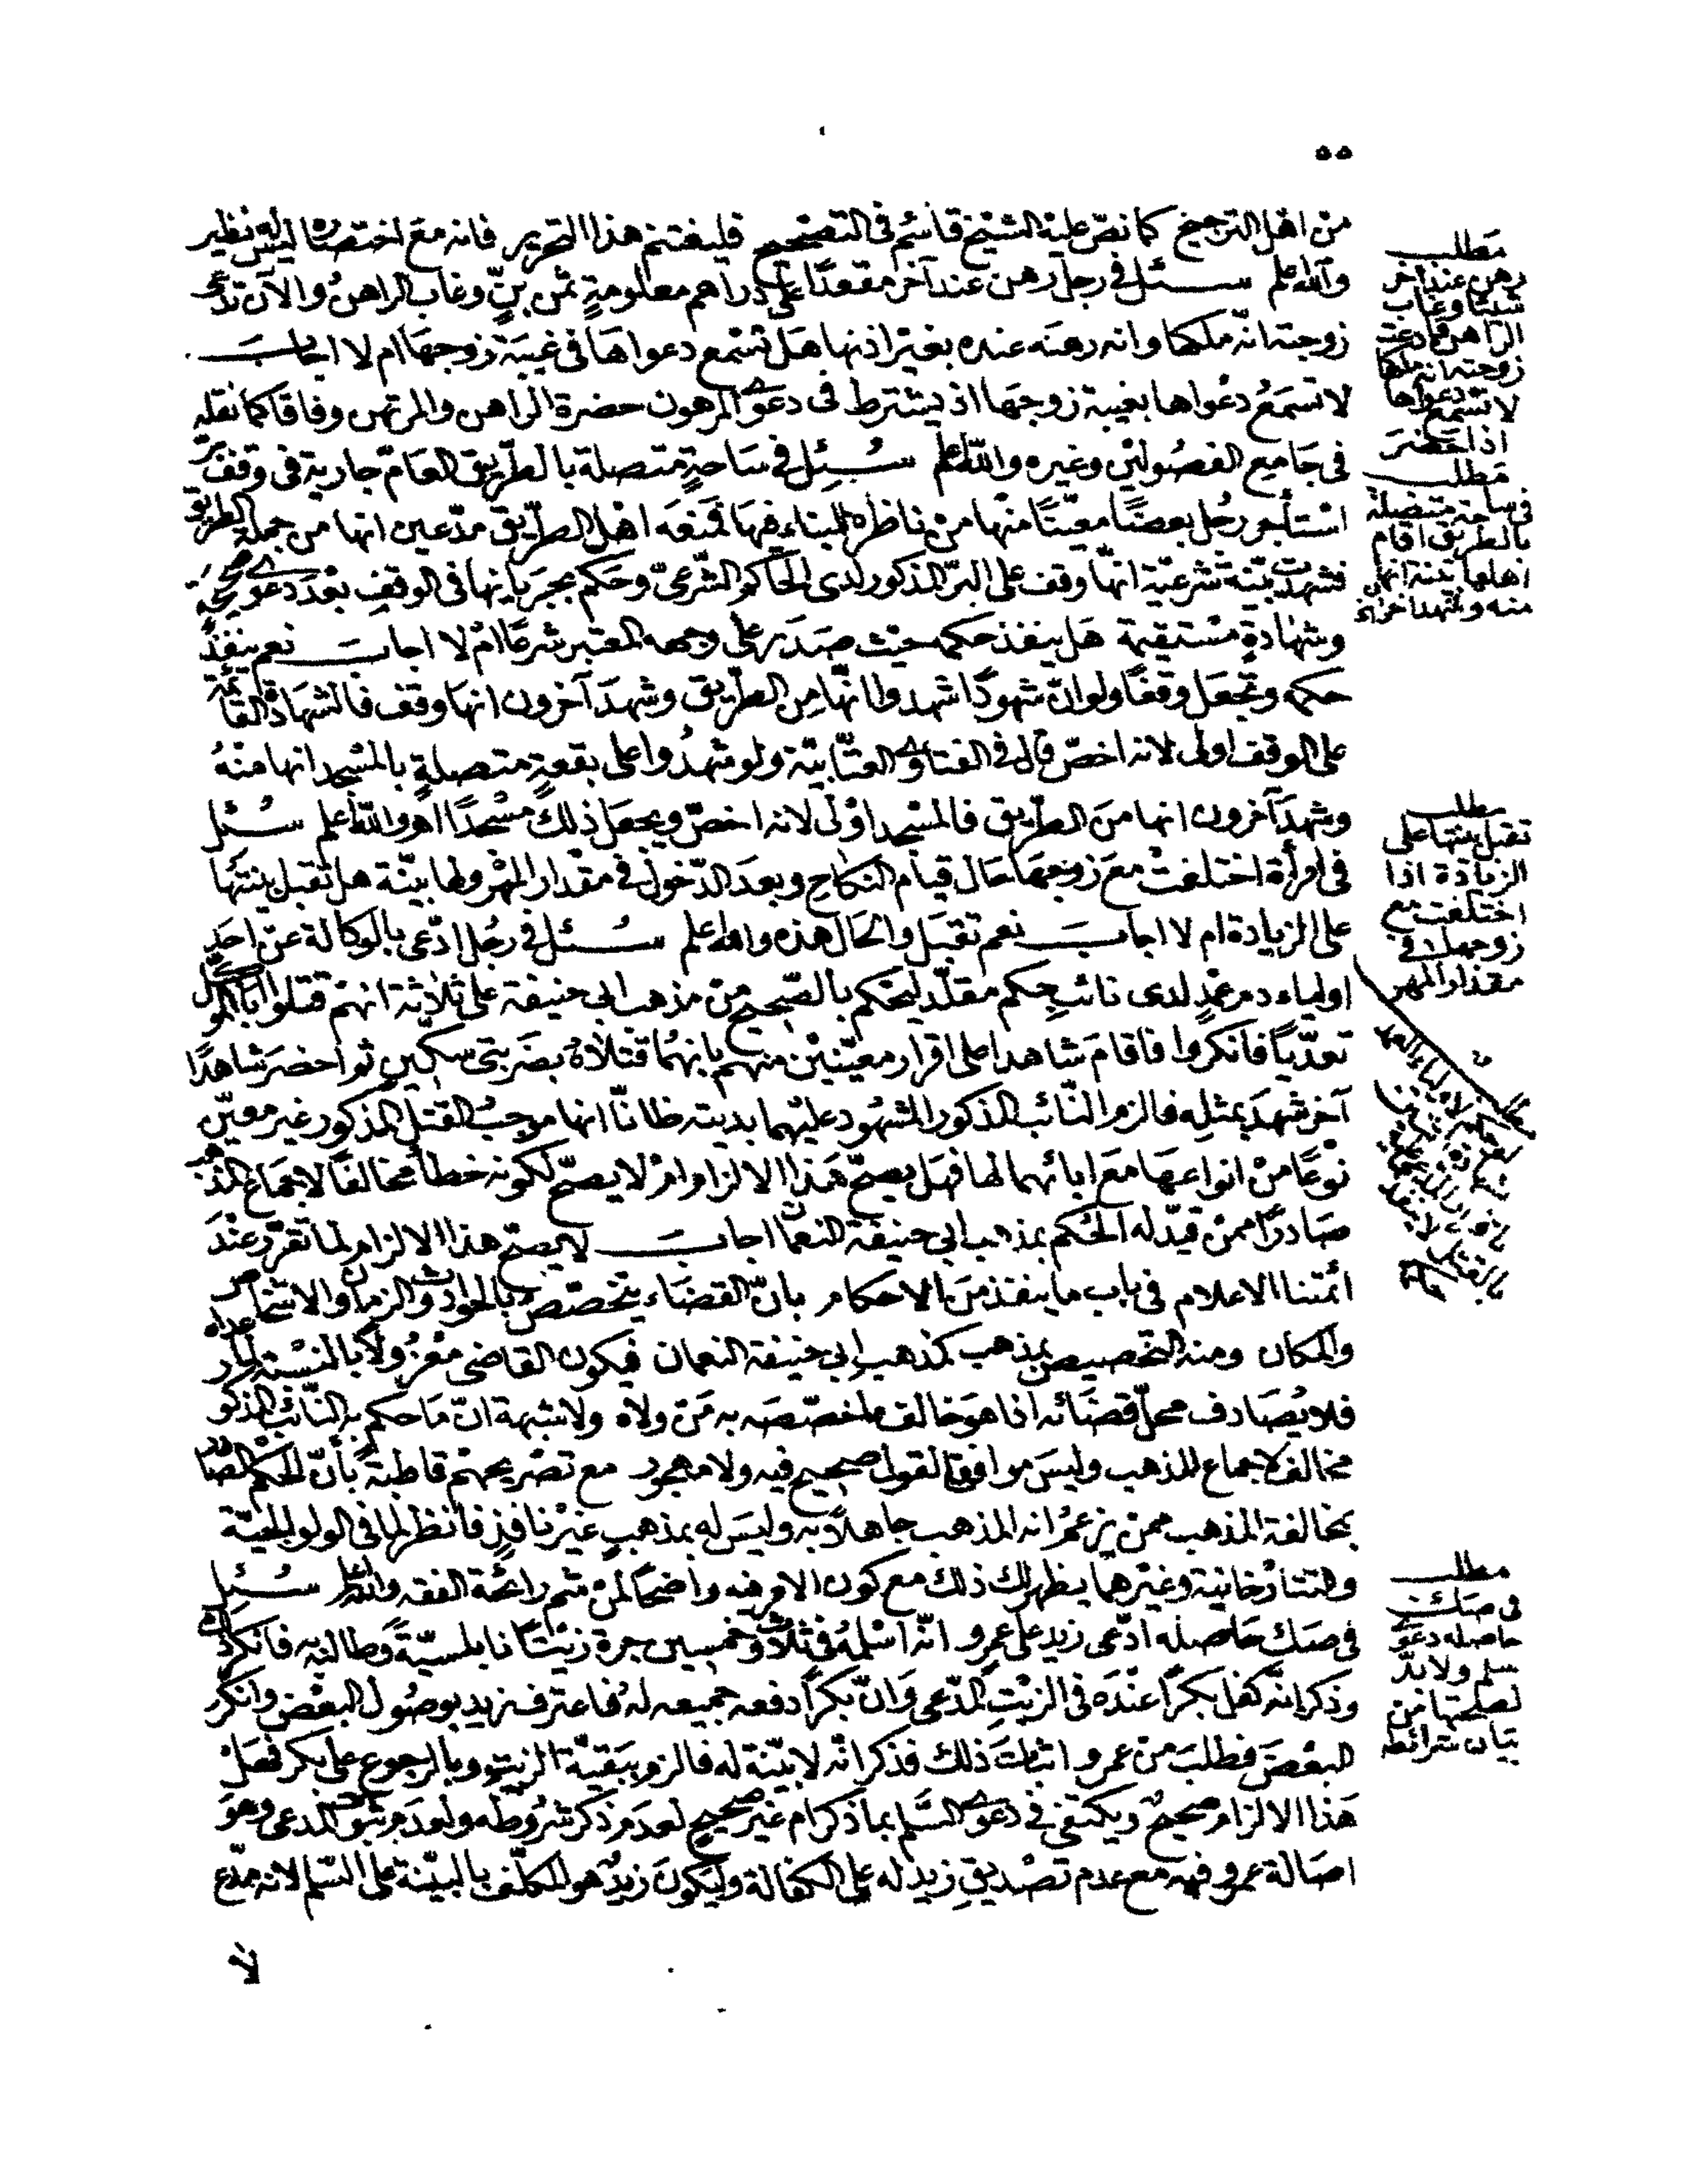 ٥٥
من اهل الترجيح كما نصّ عليه الشيخ قاسم فى التصحيح فليغتنم هذا التحرير فانه مع اختصاره ليس له نظير
والله اعلم سئل فى رجل رهن عند آخر مقعدًا على دراهم معلومةٍ ثمن بنٍّ وغاب الراهن والآن تدّعى
زوجته انّه ملكها وانه رهنه عنده بغير اذنها هل تسمع دعواها فى غيبة زوجها ام لا اجاب
لا تسمع دعواها بغيبة زوجها اذ يشترط فى دعوى المرهون حضرة الراهن والمرتهن وفاقا كما نقله
فى جامع الفصولين وغيره والله اعلم سئل فى ساحةٍ متصلة بالطريق العامّ جارية فى وقف برّ
استأجر رجل بعضًا معيّنًا منها من ناظره للبناء فيها فمنعه اهل الطريق مدّعين انها من جملة الطريق
فشهدت بيّنة شرعيّة انّها وقف على البرّ المذكور لدى الحاكم الشرعىّ وحكم بجريانها فى الوقف بعد دعوى صحيحةٍ
وشهادةٍ مستقيمة هل ينفذ حكمه حيث صدر على وجهه المعتبر شرعًا ام لا اجاب نعم ينفذ
حكمه وتجعل وقفًا ولو انّ شهودًا شهدوا انّها من الطريق وشهد آخرون انها وقف فالشهادة القائمة
على الوقف اولى لانه اخصّ قال فى الفتاوى العتّابيّة ولو شهدوا على بقعةٍ متصلةٍ بالمسجد انها منه
وشهد آخرون انها من الطريق فالمسجد اولى لانه اخصّ ويجعل ذلك مسجدًا اهـ والله اعلم سئل
فى امرأة اختلفت مع زوجها حال قيام النكاح وبعد الدّخول فى مقدار المهر ولها بيّنة هل تقبل بينتها
على الزيادة ام لا اجاب نعم تقبل والحال هذه والله اعلم سئل فى رجل ادّعى بالوكالة عن احد
اولياء دم عمدٍ لدى نائب حكم مقلّد ليحكم بالصّحيح من مذهب ابى حنيفة على ثلاثة انهم قتلوا ابا الموكّل
تعدّيًا فانكروا فاقام شاهدا على اقرار معيّنين منهم بانهما قتلاه بضربتى سكّينٍ ثم احضر شاهدًا
آخر شهد بمثله فالزم النّائب المذكور المشهود عليهما بديته ظانّا انها موجب القتل المذكور غير معيّن
نوعًا من انواعها مع ابائهما لها فهل يصحّ هذا الالزام ام لا يصحّ لكونه خطأ مخالفًا لاجماع المذهب
صادرًا ممن قيّد له الحكم بمذهب ابى حنيفة النعمان اجاب لا يصحّ هذا الالزام لما تقرّر عند
ائمتنا الاعلام فى باب ما ينفذ من الاحكام بانّ القضاء يتخصّص بالحوادث والزمان والاشخاص
والمكان ومنه التخصيص بمذهب كمذهب ابى حنيفة النعمان فيكون القاضى معزولًا بالنسبة لما عداه
فلا يصادف محلّ قضائه اذا هو خالف ما خصّصه به من ولاه ولا شبهة انّ ما حكم به النّائب المذكور
مخالف لاجماع المذهب وليس موافقا لقول صحيح فيه ولا مهجور مع تصريحهم قاطبةً بأنّ الحكم الصّادر
بمخالفة المذهب ممن يزعم انه المذهب جاهلاً به وليس له بمذهبٍ غير نافذٍ فانظر لما فى الولوالجيّة
والتتارخانية وغيرهما يظهر لك ذلك مع كون الامر فيه واضحًا لمن شم رائحة الفقه والله اعلم سئل
فى صك حاصله ادّعى زيد على عمرو انّه اسلمه فى ثلاث وخمسين جرة زيتًا نابلسيّةً وطالبه به فانكر
وذكر انّه كفل بكرًا عنده فى الزيت المدّعى وانّ بكرًا دفعه جميعه له فاعترف زيد بوصول البعض وانكر
البعض فطلب من عمرو اثبات ذلك فذكر انّه لا بيّنة له فالزم ببقيّة الزيت وبالرجوع على بكر فهل
هذا الالزام صحيحٌ ويكتفى فى دعوى السّلم بما ذكر ام غير صحيح لعدم ذكر شروطه ولعدم ثبوت المدعى وهو
اصالة عمرو فيه مع عدم تصديق زيد له على الكفالة وليكون زيدٌ هو المكلّف بالبيّنة على السّلم لانه مدّع
لا
مطلب
رهن عند آخر
شيئا وغاب
الراهن فادعت
زوجته انه ملكها
لا تسمع دعواها
اذا لم تحضر
مطلب
فى ساحة متصلة
بالطريق اقام
اهلها بينة انها
منه وشهد اخر الخ
مطلب
تقبل بينتها على
الزيادة اذا
اختلفت مع
زوجها فى
مقدار المهر
مطلب
فى صك
حاصله دعوى
سلم ولا بدّ
لصحتها من
بيان شرائطه